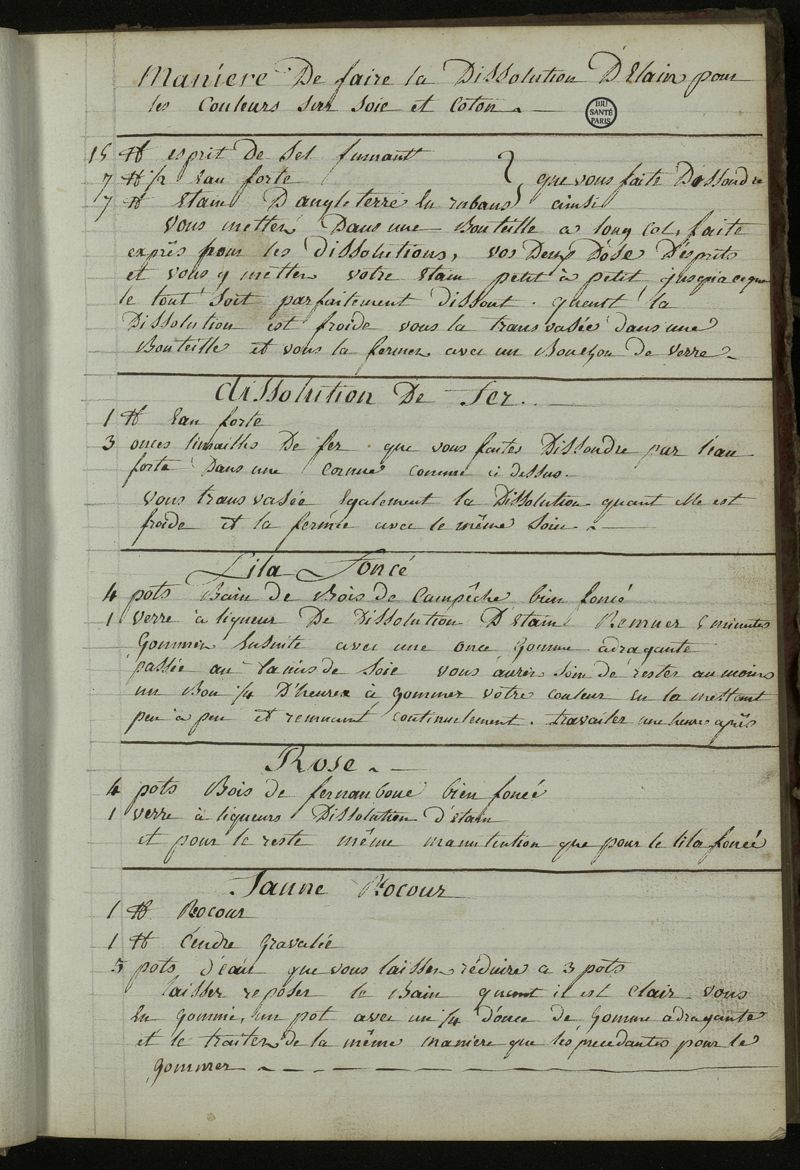 Maniere De faire la Dissolution D'Etain pour
les Couleurs sur Soie et Coton.
BIU
SANTÉ
PARIS
15 ℔ esprit De Sel fumant
7 ℔ 1/2 Eau forte } que vous faite Dissoudre
7 ℔ Etain D'angleterre En rubans ainsi
Vous metter Dans une Bouteille a long col, faite
exprês pour les dissolutions, vos Deux Dose D'ésprits
et vous y metter votre Etain petit à petit, jusqu'a ceque
le tout soit parfaitement dissout. quant la
Dissolution est froide vous la transvasée dans une
Bouteille et vous la fermer avec un Bouchon de verre
dissolution De Fer.
1 ℔ Eau forte
3 onces limailles De fer que vous faites Dissoudre par l'eau
forte Dans une Cornue comme ci dessus.
Vous transvasée Egalement la Dissolution quant elle est
froide et la fermée avec le même Soin.
Lila Foncé
4 pots Bain de Bois de Campêche bien foncé
1 verre à liqueur De Dissolution D'Etain Remuer 5 minutes
Gommer Ensuite avec une once Gomme adragante
passée au tamis de Soie vous aurer Soin de rester au moins
un Bon 1/4 D'heure à gommer votre couleur En la mettant
peu à peu et remuant continuelement. travailer une heure après
Rose
4 pots Bois de fernambouc bien foncé
1 verre à liqueurs Dissolution d'étain
et pour le reste même manutention que pour le lila foncé
Jaune Rocour
1 ℔ Rocour
1 ℔ Cendre Gravalée
5 pots d'eau que vous laisser réduire a 3 pots
laisser reposer le Bain quant il est clair vous
En gommé, un pot avec un 1/4 d'once de Gomme adragante
et le traiter de la même maniere que les precedantes pour le
gommer